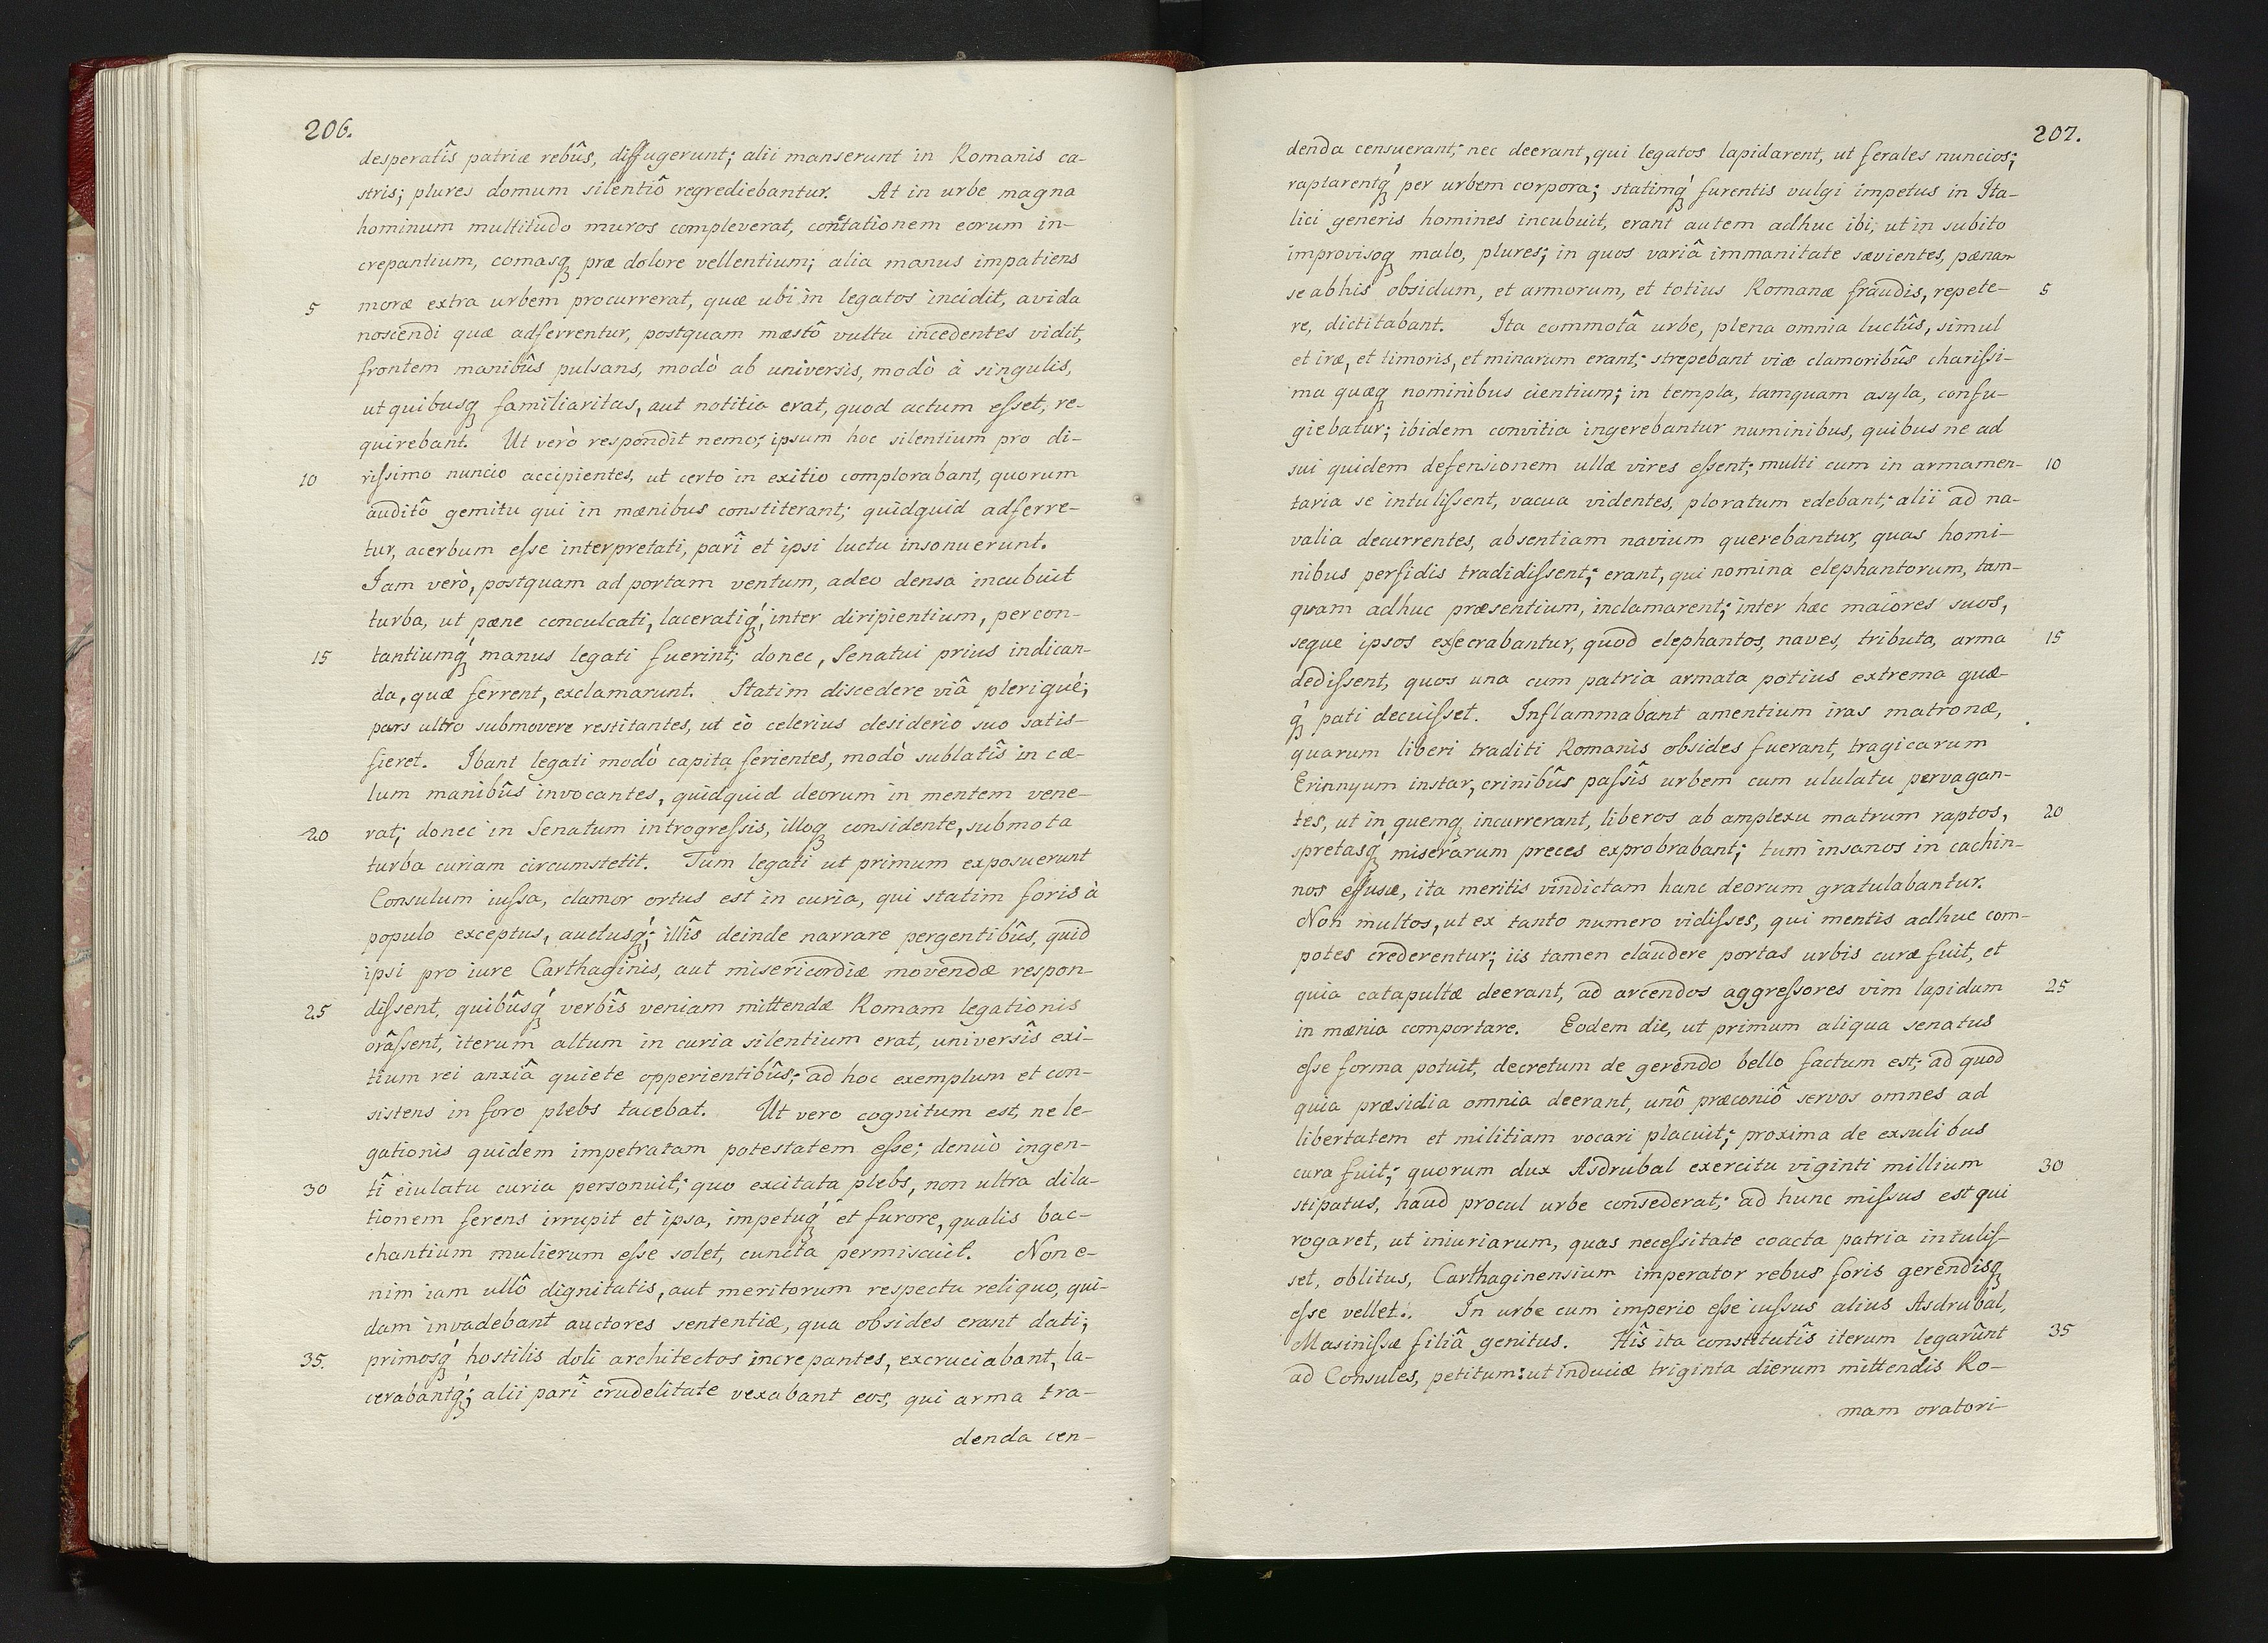 206.
desperatîs patriæ rebûs, diffugerunt; alii manserunt in Romanis ca-
stris; plures domum silentiô regrediebantur. At in urbe magna
hominum multitudo muros compleverat, contationem eorum in-
crepantium, comasq́ præ dolore vellentium; alia manus impatiens
5 moræ extra urbem procurrerat, quæ ubi in legatos incidit, avida
noscendi quæ adferrentur, postquam mæstô vultu incedentes vidit,
frontem manibûs pulsans, modò ab universis, modò à singulis,
ut quibusq́ familiaritas, aut notitia erat, quod actum eſset, re-
quirebant. Ut verò respondit nemo; ipsum hoc silentium pro di-
10 riſsimo nuncio accipientes, ut certo in exitio complorabant, quorum
auditô gemitu qui in mænibus constiterant; quidquid adferre-
tur, acerbum eſse interpretati, parî et ipsi luctu insonuerunt.
Iam verò, postquam ad portam ventum, adeo densa incubuit
turba, ut pæne conculcati, laceratiq́; inter diripientium, percon-
15 tantiumq́ manus legati fuerint; donec, Senatui prius indican-
da, quæ ferrent, exclamarunt. Statim discedere viâ plerique;
pars ultro submovere restitantes, ut eò celerius desiderio suo satis-
fieret. Ibant legati modò capita ferientes, modò sublatîs in cæ-
lum manibûs invocantes, quidquid deorum in mentem vene-
20 rat; donec in Senatum introgreſsis, illoq́ considente, submota
turba curiam circumstetit. Tum legati ut primum exposuerunt
Consulum iuſsa, clamor ortus est in curia, qui statim foris à
populo exceptus, auctusq́; illîs deinde narrare pergentibûs, quid
ipsi pro iure Carthaginis, aut misericordiæ movendæ respon-
25 diſsent, quibûsq́ verbîs veniam mittendæ Romam legationis
orâſsent, iterum altum in curia silentium erat, universîs exi-
tium rei anxiâ quiete opperientibûs; ad hoc exemplum et con-
sistens in foro plebs tacebat. Ut vero cognitum est, ne le-
gationis quidem impetratam potestatem eſse; denuò ingen-
30 tî eiulatu curia personuit; quo excitata plebs, non ultra dila-
tionem ferens irrupit et ipsa, impetuq́ et furore, qualis bac-
chantium mulierum eſse solet, cuncta permiscuit. Non e-
nim iam ullô dignitatis, aut meritorum respectu reliquo, qui-
dam invadebant auctores sententiæ, qua obsides erant dati;
35. primosq́ hostilis doli architectos increpantes, excruciabant, la-
cerabantq́; alii parî crudelitate vexabant eos, qui arma tra-
denda cen-
207.
denda censuerant; nec deerant, qui legatos lapidarent, ut ferales nuncios;
raptarentq́ per urbem corpora; statimq́ furentis vulgi impetus in Ita-
lici generis homines incubuit, erant autem adhuc ibi, ut in subito
improvisoq́ malo, plures; in quos variâ immanitate sævientes, pænam
se ab his obsidum, et armorum, et totius Romanæ fraudis, repete- 5
re, dictitabant. Ita commotâ urbe, plena omnia luctûs, simul
et iræ, et timoris, et minarum erant; strepebant viæ clamoribûs chariſsi-
ma quæq́ nominibus cientium; in templa, tamquam asyla, confu-
giebatur; ibidem convitia ingerebantur numinibus, quibus ne ad
sui quidem defensionem ullæ vires eſsent; multi cum in armamen- 10
taria se intuliſsent, vacua videntes, ploratum edebant; alii ad na-
valia decurrentes, absentiam navium querebantur, quas homi-
nibus perfidis tradidiſsent; erant, qui nomina elephantorum, tam-
quam adhuc præsentium, inclamarent; inter hæc maiores suos,
seque ipsos exſecrabantur, quod elephantos, naves, tributa, arma 15
dediſsent, quos una cum patria armata potius extrema quæ-
q́ pati decuiſset. Inflammabant amentium iras matronæ,
quarum liberi traditi Romanis obsides fuerant, tragicarum
Erinnyum instar, crinibûs paſsîs urbem cum ululatu pervagan-
tes, ut in quemq́ incurrerant, liberos ab amplexu matrum raptos, 20
spretasq́ miserarum preces exprobrabant; tum insanos in cachin-
nos effusæ, ita meritis vindictam hanc deorum gratulabantur.
Non multos, ut ex tanto numero vidiſses, qui mentis adhuc com-
potes crederentur; iis tamen claudere portas urbis curæ fuit, et
quia catapultæ deerant, ad arcendos aggreſsores vim lapidum 25
in mænia comportare. Eodem die, ut primum aliqua senatus
eſse forma potuit, decretum de gerendo bello factum est; ad quod
quia præsidia omnia deerant, unô præconiô servos omnes ad
libertatem et militiam vocari placuit; proxima de exsulibus
cura fuit; quorum dux Asdrubal exercitu viginti millium 30
stipatus, haud procul urbe consederat; ad hunc miſsus est qui
rogaret, ut iniuriarum, quas neceſsitate coacta patria intuliſ-
set, oblitus, Carthaginensium imperator rebus foris gerendisq́
eſse vellet. In urbe cum imperio eſse iuſsus alius Asdrubal,
Masiniſsæ filiâ genitus. Hîs ita constitutîs iterum legarûnt 35
ad Consules, petitum: ut induciæ triginta dierum mittendis Ro-
mam oratori-